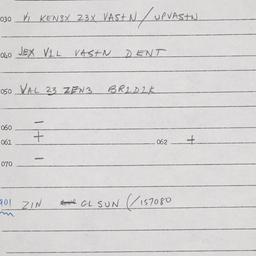 030 VI KEN3X 23X VASTN / UPVASTN
040 JEX VIL VASTN DENT
050 VAL 23 ZEN3 BRIDIK
060 —
061 + 062 +
070 —
901 ZIN OLSUN (/157080